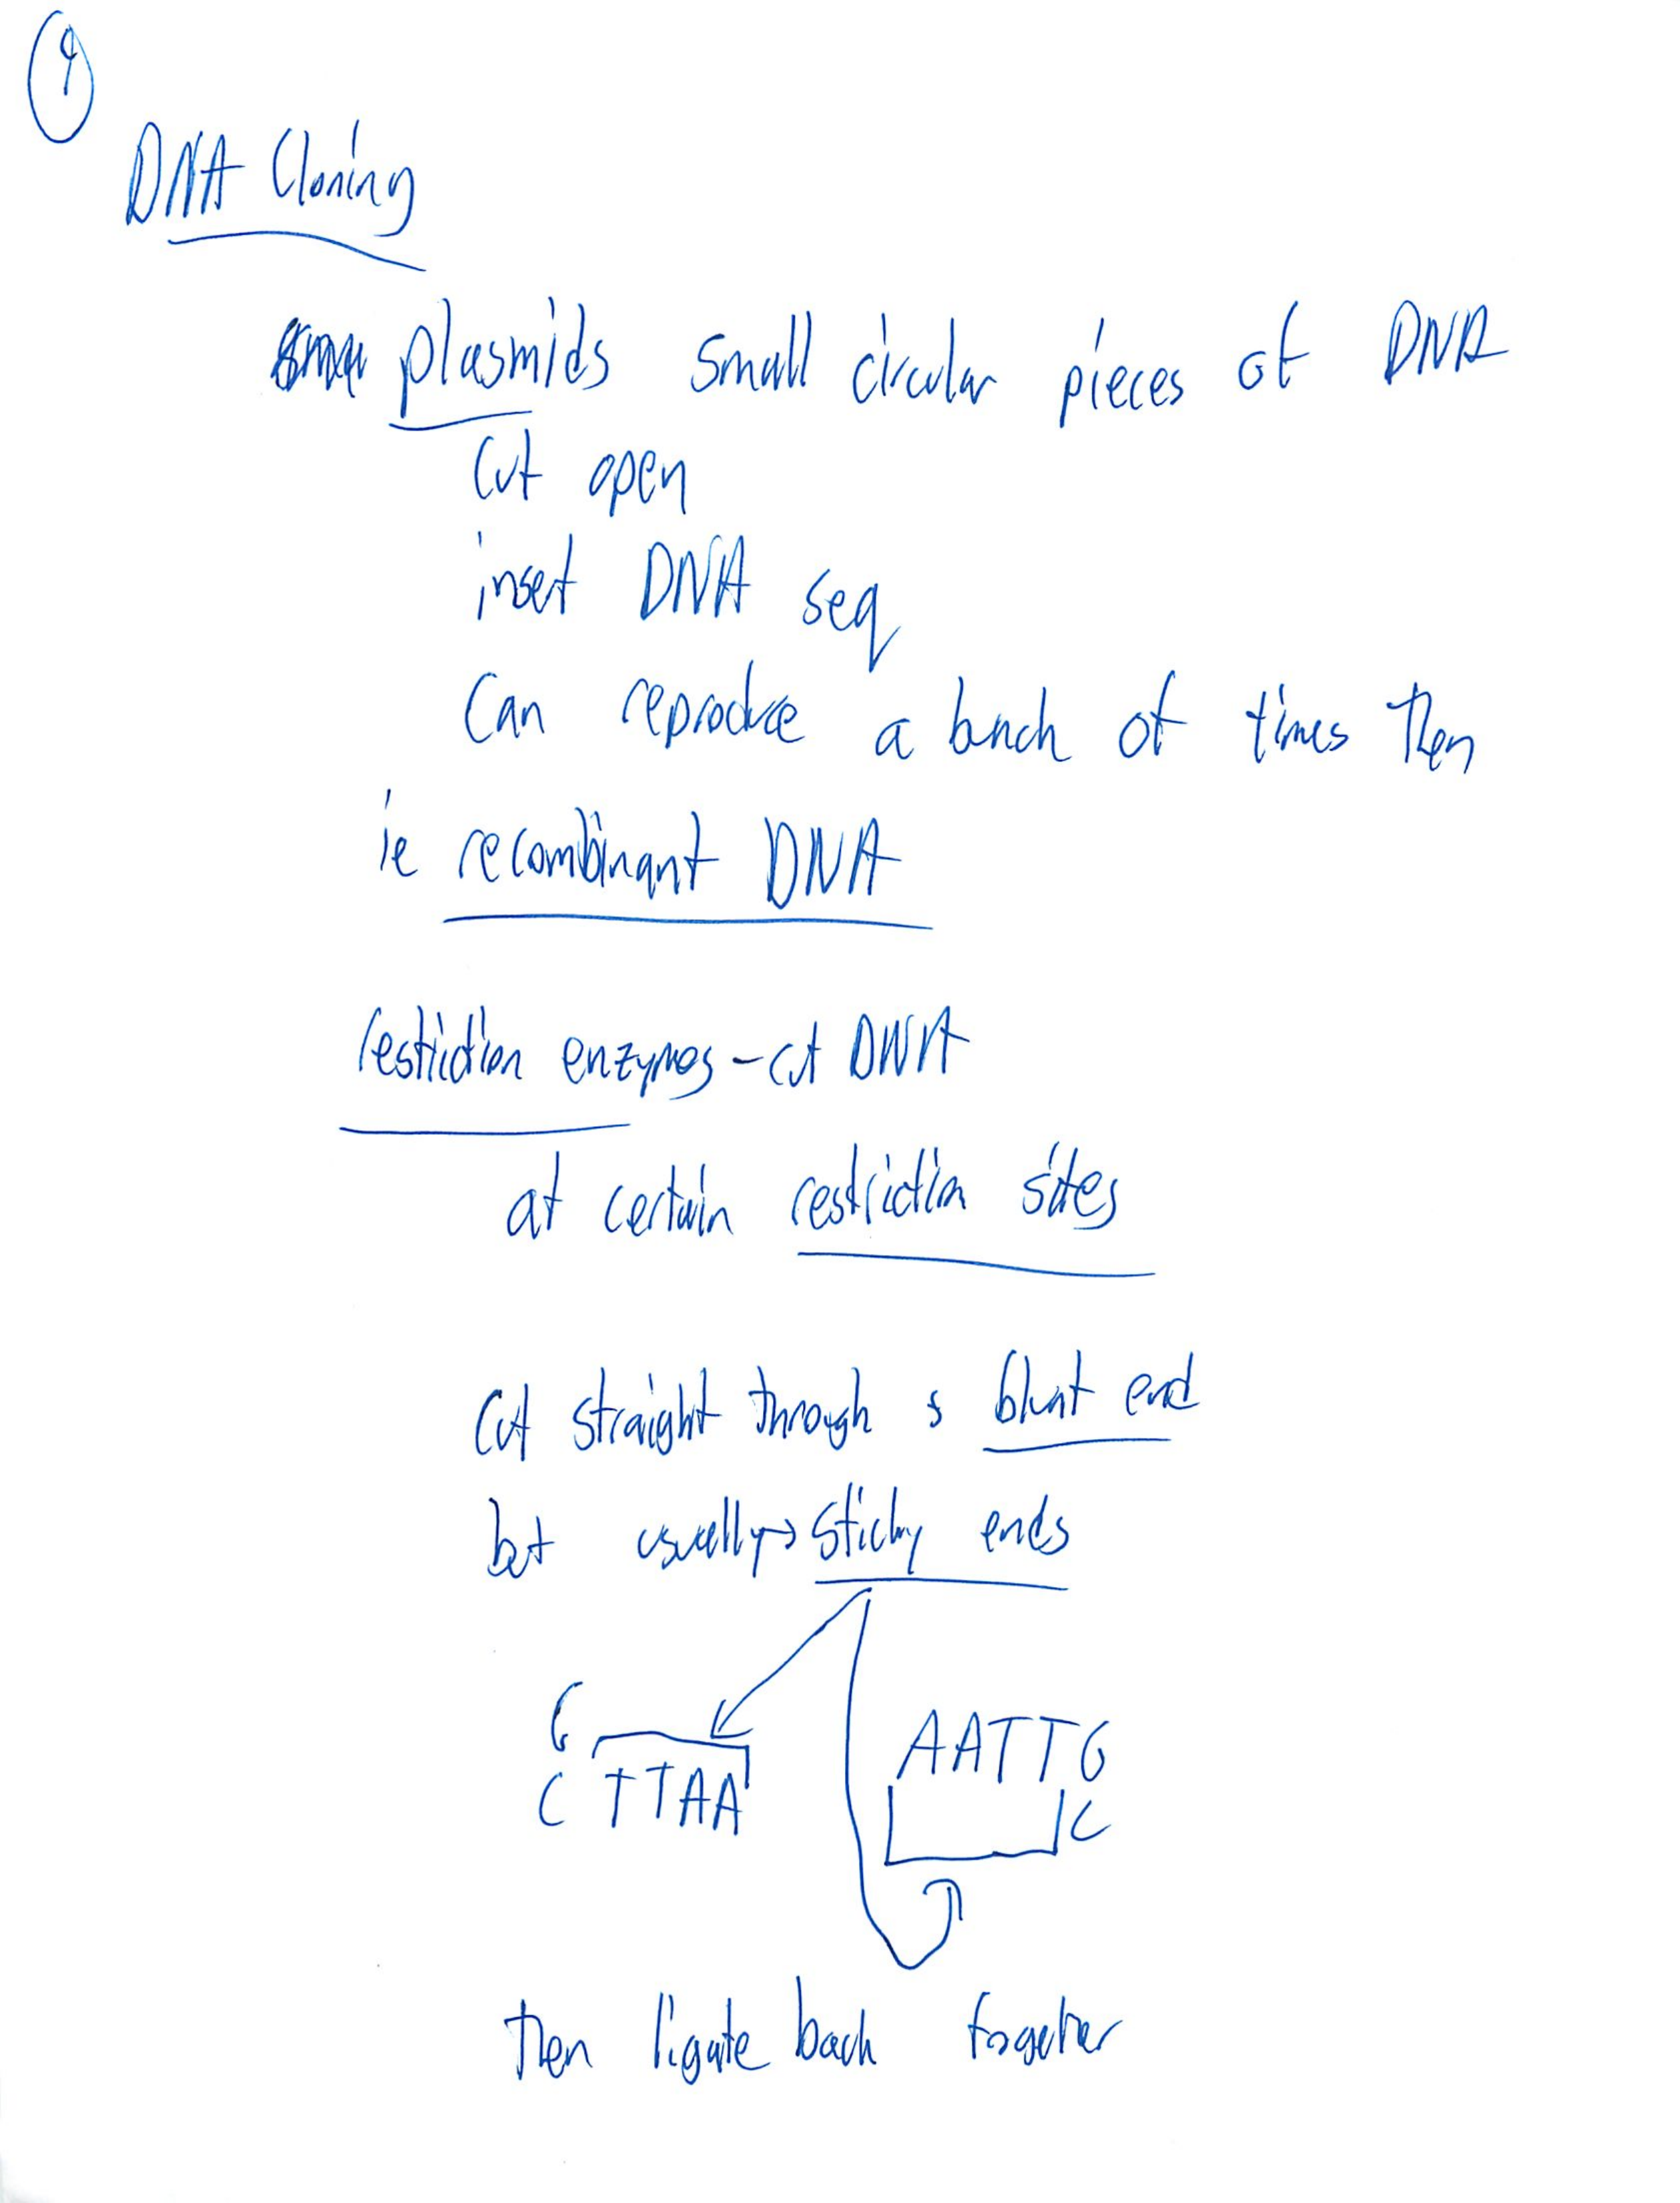 9
DNA Cloning
plasmids small circular pieces of DNA
Cut open
insert DNA seq
Can reproduce a bunch of times then
ie recombinant DNA
restriction enzymes - cut DNA
at certain restriction sites
Cut straight through blunt end
but usually → sticky ends
G AATTG
CTTAA C
Then ligate back together